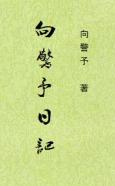 向警予 著
向警予日記